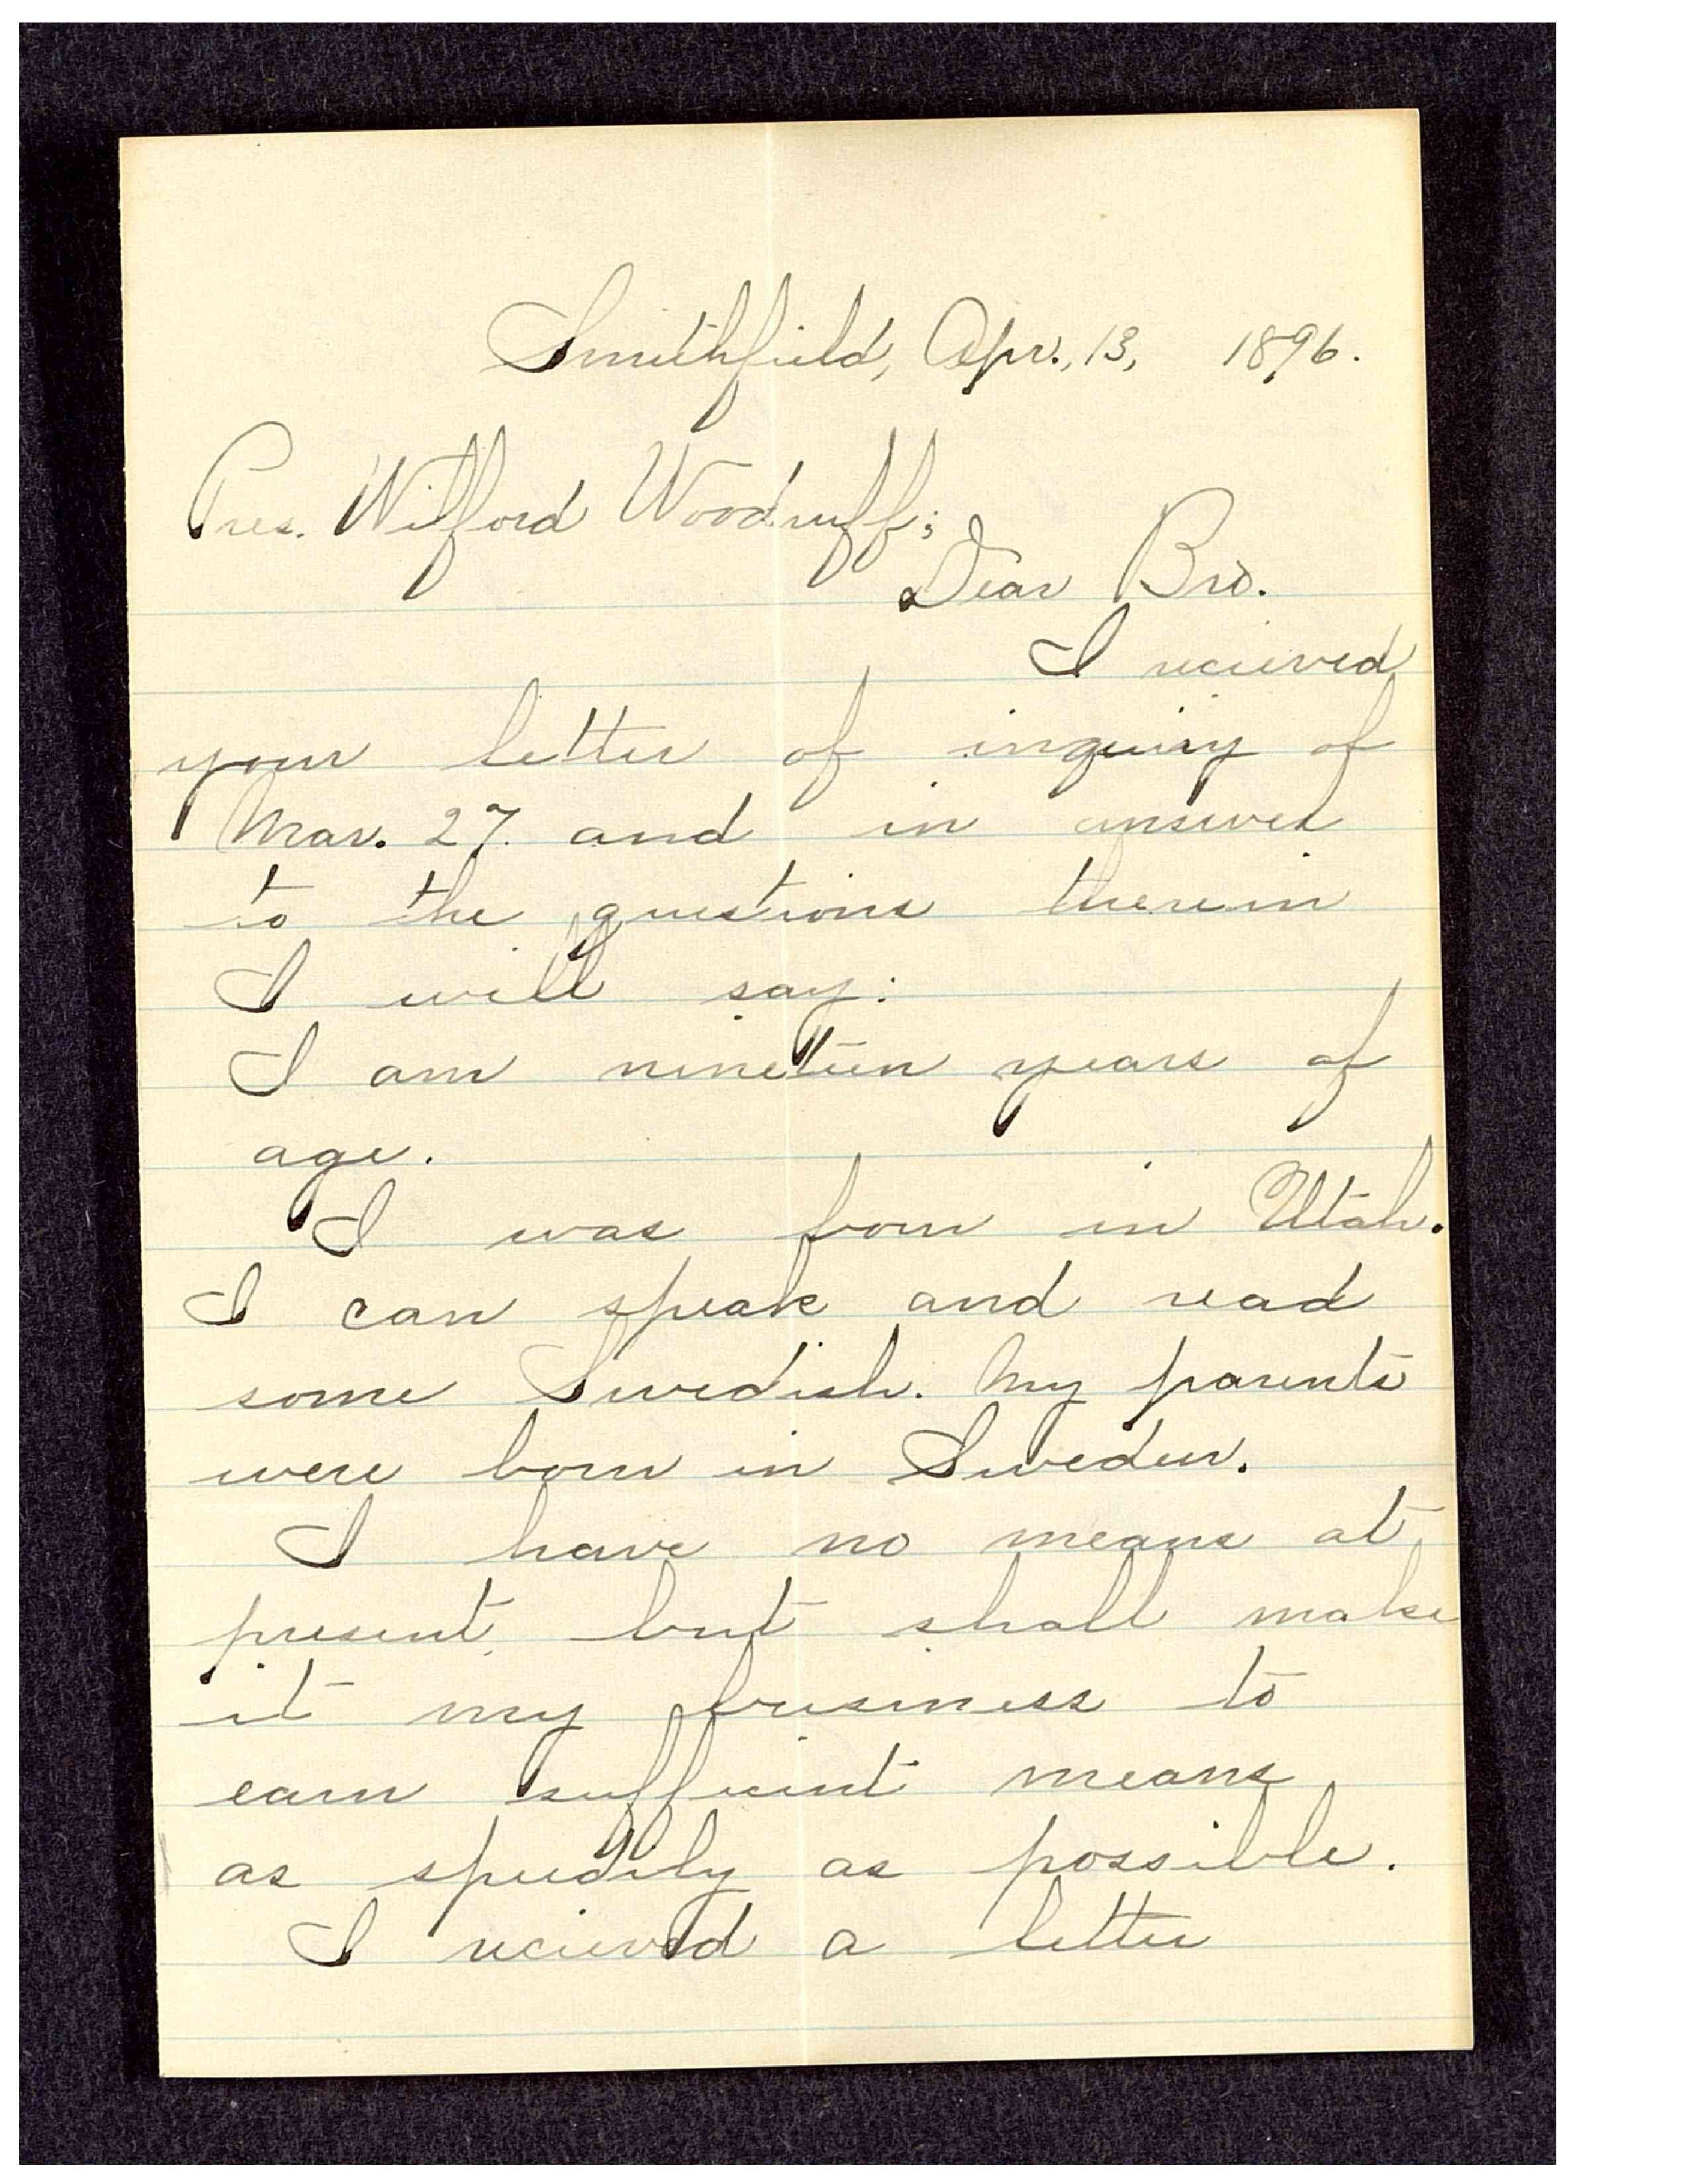 Smithfield, Apr., 13, 1896.
Pres. Wilford Woodruff;
Dear Bro.
I recieved
your letter of inquiry of
Mar. 27. and in answer
to the questions therein
I will say:
I am nineteen years of
age.
I was born in Utah.
I can speak and read
some Swedish. My parents
were born in Sweden.
I have no means at
present, but shall make
it my business to
earn sufficint means
as speedily as possible.
I recieved a letter